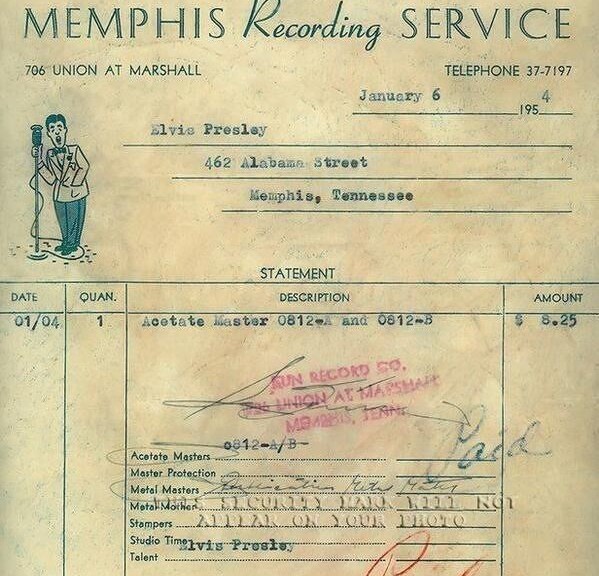 MEMPHIS Recording SERVICE
706 UNION AT MARSHALL TELEPHONE 37-7197
January 6 1954
Elvis Presley
462 Alabama Street
Memphis, Tennessee
STATEMENT
DATE QUAN. DESCRIPTION AMOUNT
01/04 1 Acetate Master 0812-A and 0812-B $ 8.25
SUN RECORD CO.
706 UNION AT MARSHALL
MEMPHIS, TENN.
Paid
Acetate Masters 0812-A/B
Master Protection
Metal Masters
Metal Mother
THIS SECURITY MARK WILL NOT
Stampers
APPEAR ON YOUR PHOTO
Studio Time
Elvis Presley
Talent